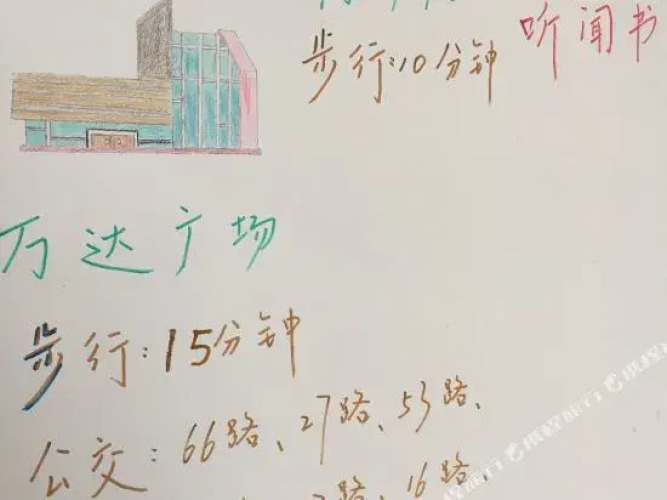 听闻书
步行:10分钟
万达广场
步行:15分钟
公交:66路、27路、53路、
16路、
携程旅行